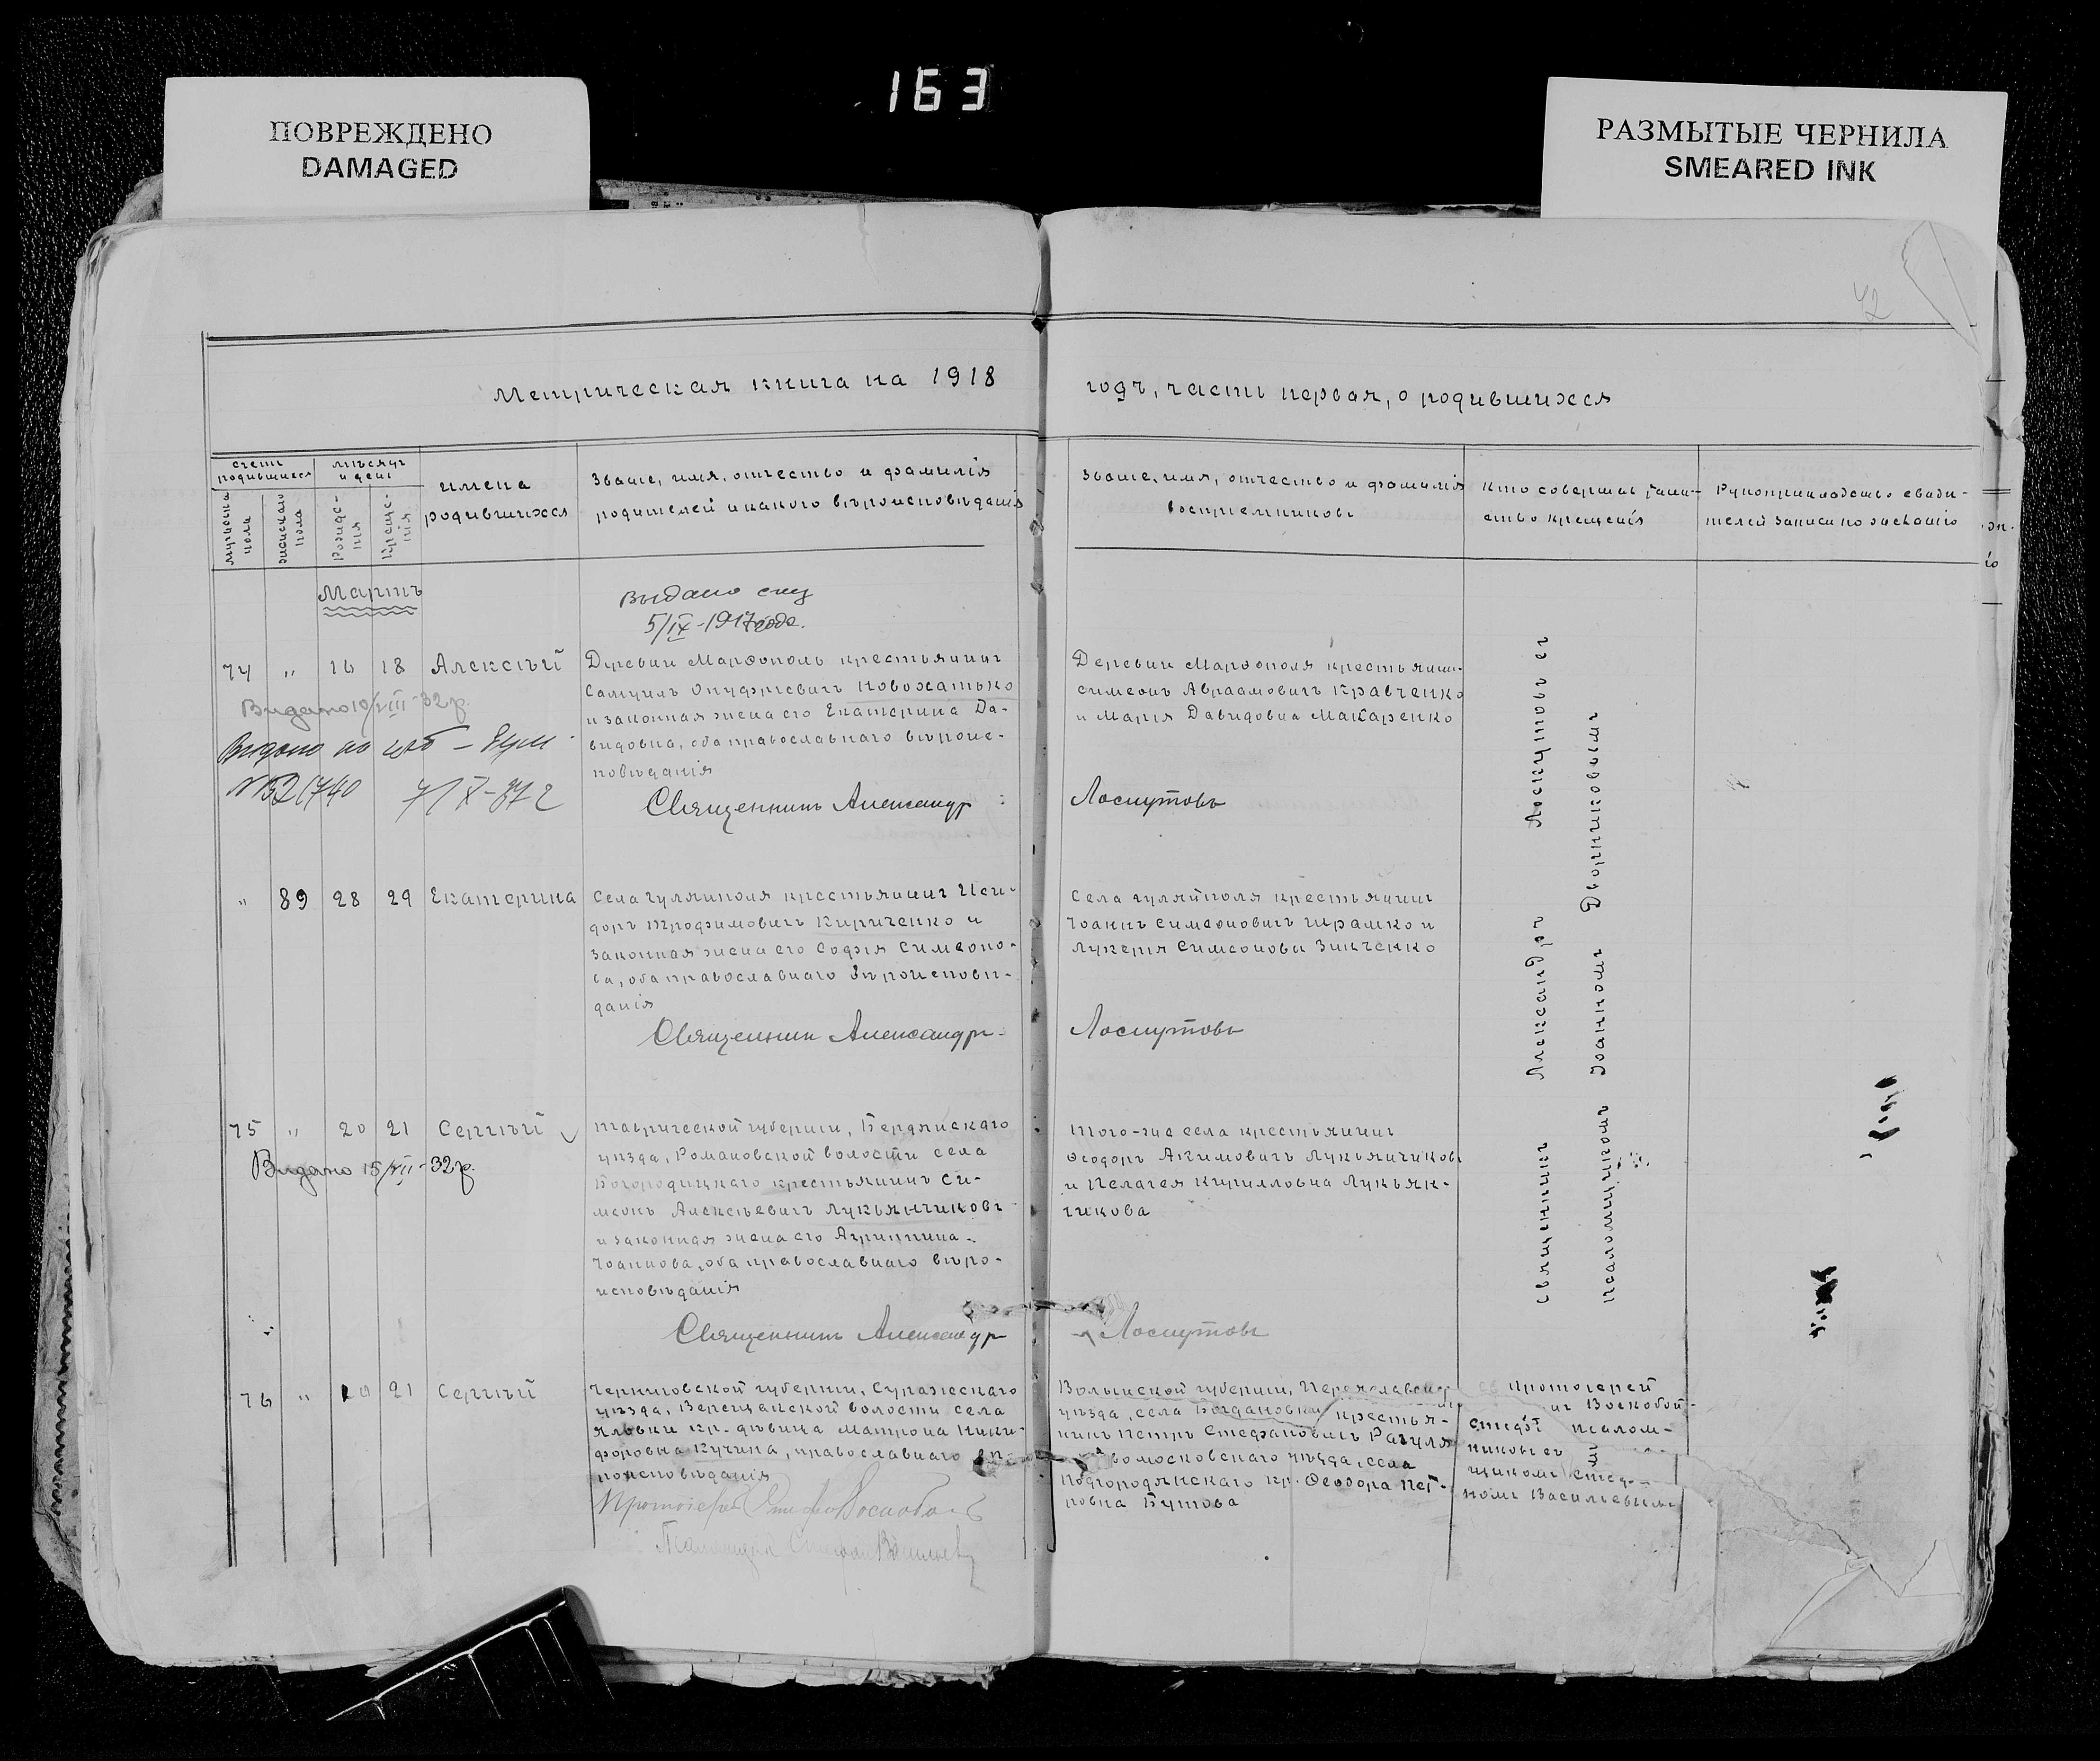 163
ПОВРЕЖДЕНО
DAMAGED
РАЗМЫТЫЕ ЧЕРНИЛА
SMEARED INK
42
Метрическая книга на 1918
годъ, часть первая, о родившихся
счетъ родившихся
мѣсяцъ и день
имена родившихся
Званіе, имя, отчество и фамилія
родителей и какого вѣроисповѣданія
Званіе, имя, отчество и фамилія
воспріемниковъ
Кто совершалъ таин-
ство крещенія
Рукоприкладство свиди-
телей записи по желанію
мужеска пола
женскаго пола
рожде-нія
креще-нія
Мартъ
Выдано
5/IX-1917 года.
74 " 16 18 Алексѣй
Деревни Марфополь крестьянинъ
Самуилъ Онуфріевичъ Новохатько
и законная жена его Екатерина Да-
видовна, оба православнаго вѣроис-
повѣданія
Священникъ Александръ
Видано 10/VIII-32 р.
Видано
7/X-37 г
Деревни Марфополя крестьянин-
Симеонъ Авраамовичъ Кравченко
и Марія Давидовна Макаренко
Лоскутовъ
" 89 28 29 Екатерина
Села Гуляйполя крестьянинъ Иси-
доръ Трофимовичъ Кириченко и
законная жена его Софія Симеоно-
ва, оба православнаго вѣроисповѣ-
данія
Священникъ Александръ
Села Гуляйполя крестьянинъ
Іоаннъ Симеоновичъ Шрамко и
Лукерія Симеонова Зинченко
Лоскутовъ
75 " 20 21 Сергѣй
Видано 15/VII-32 р.
Таврической губерніи, Бердянскаго
уѣзда, Романовской волости села
Богородицкаго крестьянинъ Си-
меонъ Алексѣевичъ Лукьянчиковъ
и законная жена его Агриппина
Іоаннова, оба православнаго вѣро-
исповѣданія
Священникъ Александръ
Того-же села крестьянинъ
Ѳеодоръ Акимовичъ Лукьянчиковъ
и Пелагея Кирилловна Лукьян-
чикова
Лоскутовъ
76 " 20 21 Сергѣй
Черниговской губерніи, Суражскаго
уѣзда, Верещакской волости села
Яловки кр. дѣвица Матрона Ники-
форовна Кучина, православнаго вѣ-
роисповѣданія
Протоіерей Стефанъ Воскобой
Псаломщикъ Стефанъ Васильевъ
Волынской губерніи,
уѣзда, села Богдановки крестья-
нинъ Петръ Стефановичъ Рагуля
московскаго уѣзда, села
Подгородянскаго кр. Ѳеодора Пет-
ровна Бутова
Священникъ Александръ Лоскутовъ съ
псаломщикомъ Іоанномъ Дворниковымъ
Протоіерей
Воскобой-
никовъ съ псалом-
щикомъ Стефа-
номъ Васильевымъ